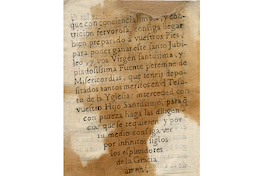 que con conciencia
tricion fervorosa, consiga llegar
bien preparado à vuestros Pies,
para poder ganar este santo Jubi-
leo, y vos Virgen santissima, y
piadosissima Fuente perenne de
Misericordias, que teneis depo-
sitados tantos meritos en el Teso-
ro de la Yglesia: interceded con
vuestro Hijo Santisimo, para q
con pureza haga las diligen-
cias que se requieren y por
tu medio consiga ver
por infinitos siglos
los esplandores
de la Gracia,